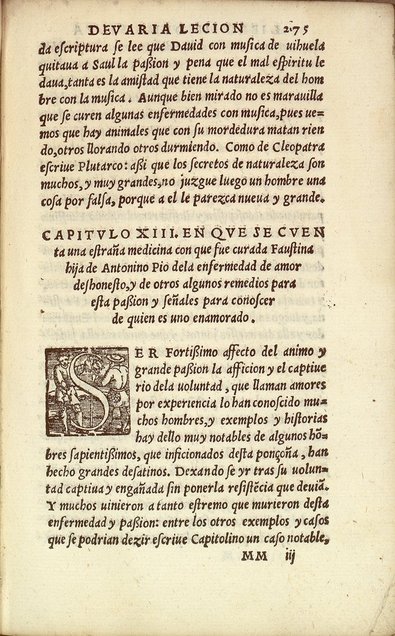 DEVARIA LECION 275
da escriptura se lee que Dauid con musica de uihuela
quitaua a Saul la paßion y pena que el mal espiritu le
daua,tanta es la amistad que tiene la naturaleza del hom
bre con la musica. Aunque bien mirado no es marauilla
que se curen algunas enfermedades con musica,pues ue-
mos que hay animales que con su mordedura matan rien
do,otros llorando otros durmiendo. Como de Cleopatra
escriue Plutarco: aßi que los secretos de naturaleza son
muchos, y muy grandes,no juzgue luego un hombre una
cosa por falsa, porque a el le parezca nueua y grande.
CAPITVLO XIII. EN QVE SE CVEN
ta una estraña medicina con que fue curada Faustina
hija de Antonino Pio dela enfermedad de amor
deshonesto,y de otros algunos remedios para
esta paßion y señales para conoscer
de quien es uno enamorado.
SER Fortißimo affecto del animo y
grande paßion la afficion y el captiue
rio dela uoluntad, que llaman amores
por experiencia lo han conoscido mu-
chos hombres,y exemplos y historias
hay dello muy notables de algunos hõ-
bres sapientißimos, que inficionados desta ponçoña, han
hecho grandes desatinos. Dexando se yr tras su uolun-
tad captiua y engañada sin ponerla resistẽcia que deuiã.
Y muchos uinieron a tanto estremo que murieron desta
enfermedad y paßion: entre los otros exemplos y casos
que se podrian dezir escriue Capitolino un caso notable,
MM iij